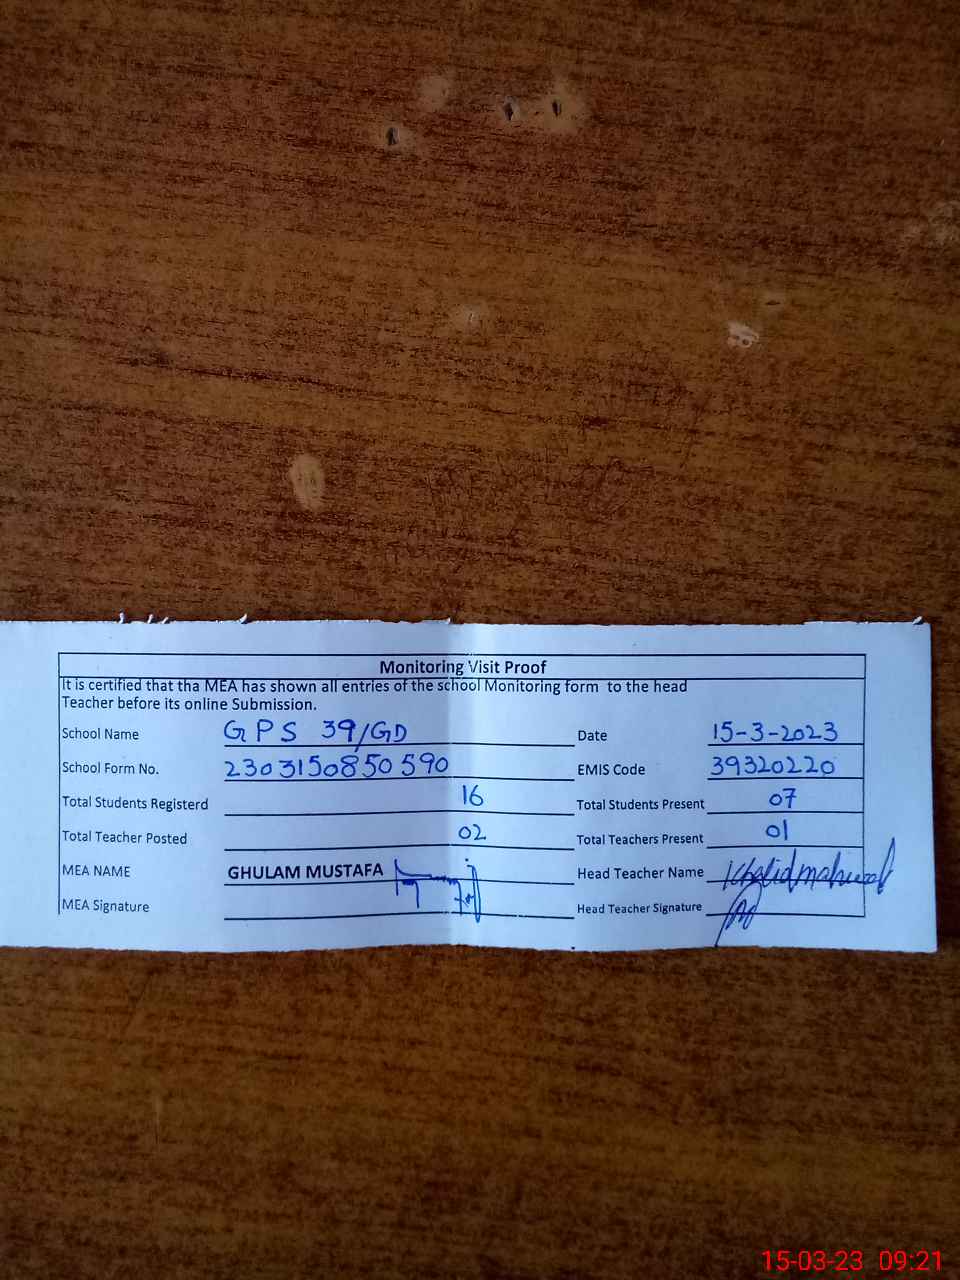 Monitoring Visit Proof
It is certified that tha MEA has shown all entries of the school Monitoring form to the head
Teacher before its online Submission.
School Name GPS 39/GD Date 15-3-2023
School Form No. 2303150850590 EMIS Code 39320220
Total Students Registerd 16 Total Students Present 07
Total Teacher Posted 02 Total Teachers Present 01
MEA NAME GHULAM MUSTAFA Head Teacher Name Khalid mahmood
MEA Signature Head Teacher Signature
15-03-23 09:21